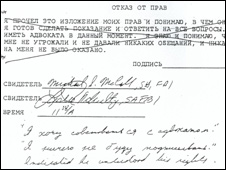 ОТКАЗ ОТ ПРАВ
Я ПРОЧЕЛ ЭТО ИЗЛОЖЕНИЕ МОИХ ПРАВ И ПОНИМАЮ, В ЧЕМ ОН
И ГОТОВ СДЕЛАТЬ ПОКАЗАНИЕ И ОТВЕТИТЬ НА ВСЕ ВОПРОСЫ.
ИМЕТЬ АДВОКАТА В ДАННЫЙ МОМЕНТ. Я ЗНАЮ И ПОНИМАЮ, Ч
МНЕ НЕ УГРОЖАЛИ И НЕ ДАВАЛИ НИКАКИХ ОБЕЩАНИЙ, И НИКА
НА МЕНЯ НЕ БЫЛО ОКАЗАНО.
ПОДПИСЬ
СВИДЕТЕЛЬ SA, FBI
СВИДЕТЕЛЬ , SA FBI
ВРЕМЯ
"Я хочу советоваться с адвокатом."
"Я ничего не буду подписывать."
Indicated he understood his rights.